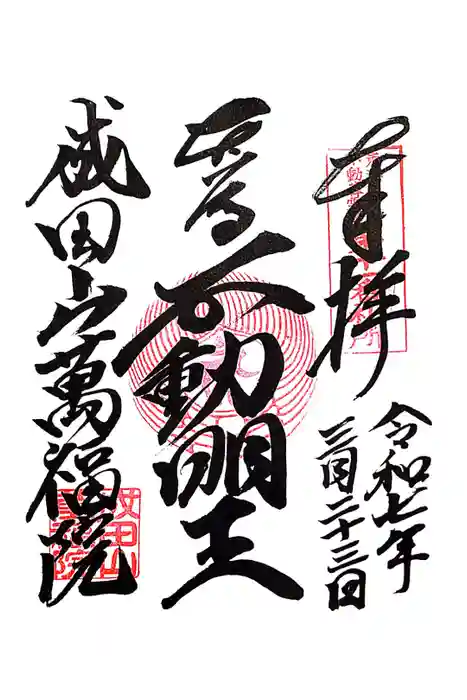 奉拝
令和七年
三月二十三日
不動明王
成田山萬福院